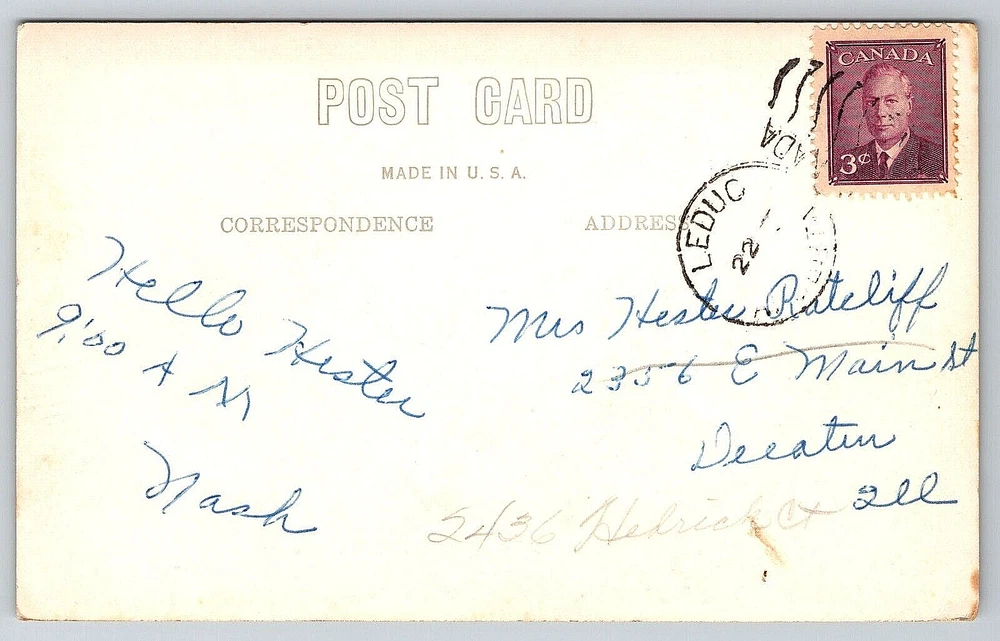 POST CARD
MADE IN U.S.A.
CORRESPONDENCE
ADDRESS
CANADA
3¢
LEDUC
22
Hello Hester
9:00 A M
Nash
Mrs Hester Ratcliff
2356 E Main St
Decatur
Ill
2436 Hedrick Ct